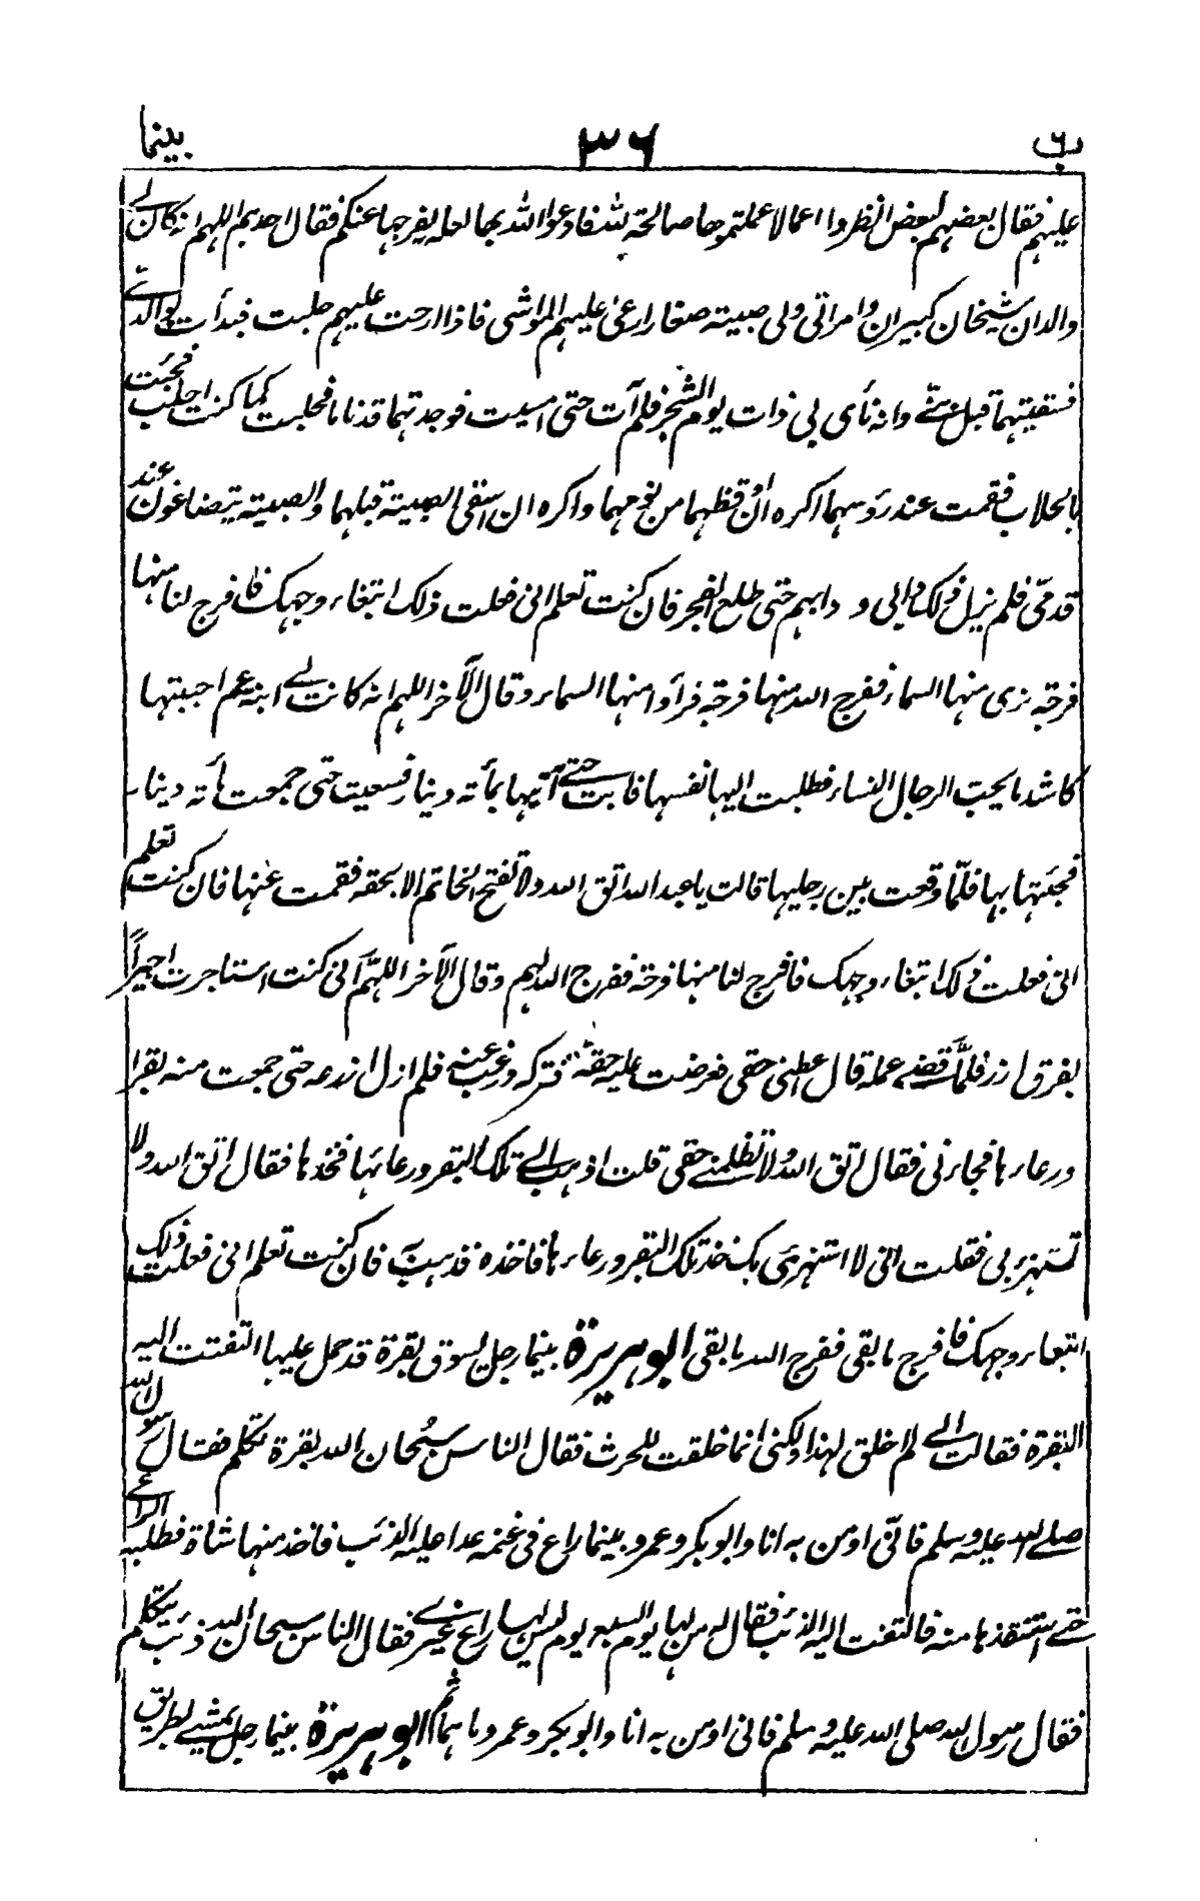 بينما ٣٦ ب
عليهم فقال بعضهم لبعض انظروا اعمالا عملتموها صالحة لله فادعوا الله بها لعله يفرجها عنكم فقال احدهم اللهم انه كان لي
والدان شيخان كبيران وامراتي ولي صبية صغار ارعى عليهم المواشي فاذا ارحت عليهم حلبت فبدأت بوالدي
فسقيتهما قبل بنيّ وانه نأى بي ذات يوم الشجر فلم آت حتى امسيت فوجدتهما قد ناما فحلبت كما كنت احلب فجئت
بالحلاب فقمت عند رؤسهما اكره ان اوقظهما من نومهما واكره ان اسقي الصبية قبلهما والصبية يتضاغون عند
قدميّ فلم يزل ذلك دابي و دابهم حتى طلع الفجر فان كنت تعلم اني فعلت ذلك ابتغاء وجهك فافرج لنا منها
فرجة نرى منها السماء ففرج الله منها فرجة فرأوا منها السماء وقال الآخر اللهم انه كانت لي ابنة عم احببتها
كاشد ما يحب الرجال النساء فطلبت اليها نفسها فابت حتى آتيها بمأته دينار فسعيت حتى جمعت مأته دينار
فجئتها بها فلمّا وقعت بين رجليها قالت يا عبد الله اتق الله ولا تفتح الخاتم الا بحقه فقمت عنها فان كنت تعلم
اني فعلت ذلك ابتغاء وجهك فافرج لنا منها فرجة ففرج الله لهم وقال الآخر اللهمّ اني كنت استاجرت اجيراً
بفرق ارز فلمّا قضى عمله قال اعطني حقي فعرضت عليه حقه فتركه ورغب عنه فلم ازل ازرعه حتى جمعت منه بقرا
ورعاءها فجاءني فقال اتق الله ولا تظلمني حقي قلت اذهب الى تلك البقر ورعائها فخذها فقال اتق الله ولا
تستهزئ بي فقلت اني لا استهزئ بك خذ تلك البقر ورعاءها فاخذه فذهب به فان كنت تعلم اني فعلت ذلك
ابتغاء وجهك فافرج ما بقي ففرج الله ما بقي ابو هريرة بينما رجل يسوق بقرة قد حمل عليها التفتت اليه
البقرة فقالت اني لم اخلق لهذا ولكني انما خلقت للحرث فقال الناس سبحان الله بقرة تكلم فقال رسول الله
صلى الله عليه وسلم فانّي اومن به انا وابو بكر وعمر وبينما راع في غنمه عدا عليه الذئب فاخذ منها شاة فطلبه الراعي
حتى استنقذها منه فالتفت اليه الذئب فقال له من لها يوم السبع يوم ليس لها راع غيري فقال الناس سبحان الله ذئب يتكلم
فقال رسول الله صلى الله عليه وسلم فاني اومن به انا وابو بكر وعمر وما هما ثم ابو هريرة بينما رجل يمشي بطريق